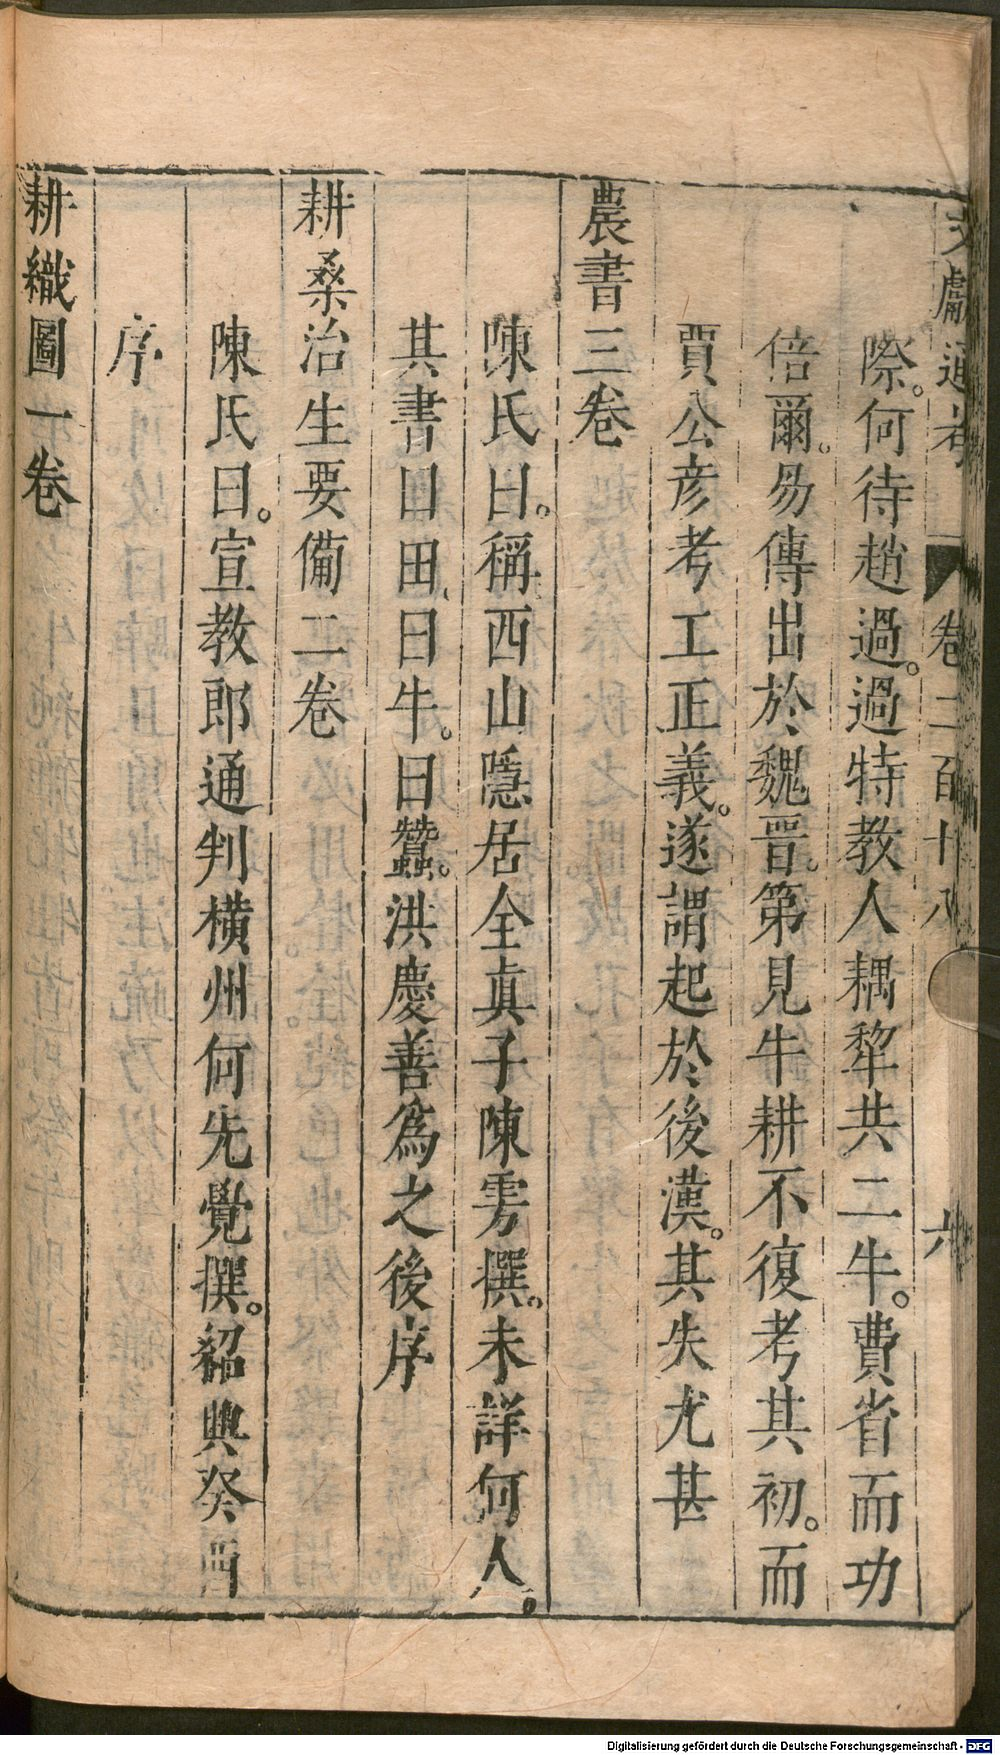 文獻通考 卷二百十八 六
際。何待趙過。過特教人耦犂共二牛。費省而功
倍爾。易傳出於魏晉。第見牛耕不復考其初。而
賈公彦考工正義。遂謂起於後漢。其失尤甚
農書三卷
陳氏曰。稱西山隱居全眞子陳旉撰。未詳何人。
其書曰田、曰牛。曰蠶。洪慶善爲之後序
耕桑治生要備二卷
陳氏曰。宣教郎通判横州何先覺撰。紹興癸酉
序
耕織圖一卷
Digitalisierung gefördert durch die Deutsche Forschungsgemeinschaft - DFG